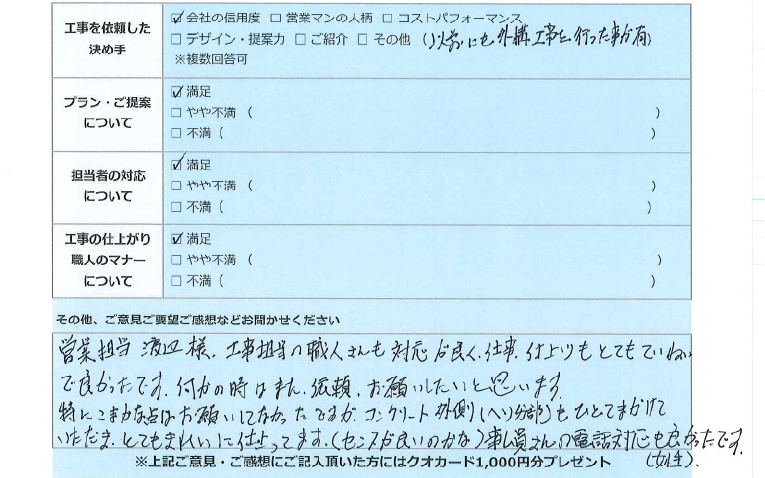 工事を依頼した
決め手
☑ 会社の信用度 □ 営業マンの人柄 □ コストパフォーマンス
□ デザイン・提案力 □ ご紹介 □ その他 (以前にも外構工事を行った事が有)
※複数回答可
プラン・ご提案
について
☑ 満足
□ やや不満 ( )
□ 不満 ( )
担当者の対応
について
☑ 満足
□ やや不満 ( )
□ 不満 ( )
工事の仕上がり
職人のマナー
について
☑ 満足
□ やや不満 ( )
□ 不満 ( )
その他、ご意見ご要望ご感想などお聞かせください
営業担当 渡辺様、工事担当の職人さんも対応が良く、仕事、仕上りもとてもていねい
で良かったです。何かの時はまた、依頼、お願いしたいと思います。
特にこまかな点はお願いしてなかったですが、コンクリート外側(へり部分)も ひと手まかけて
いただき、とてもきれいに仕上ってます。(センスが良いのかな)事ム員さんの電話対応も良かったです。
(女性).
※上記ご意見・ご感想にご記入頂いた方にはクオカード1,000円分プレゼント